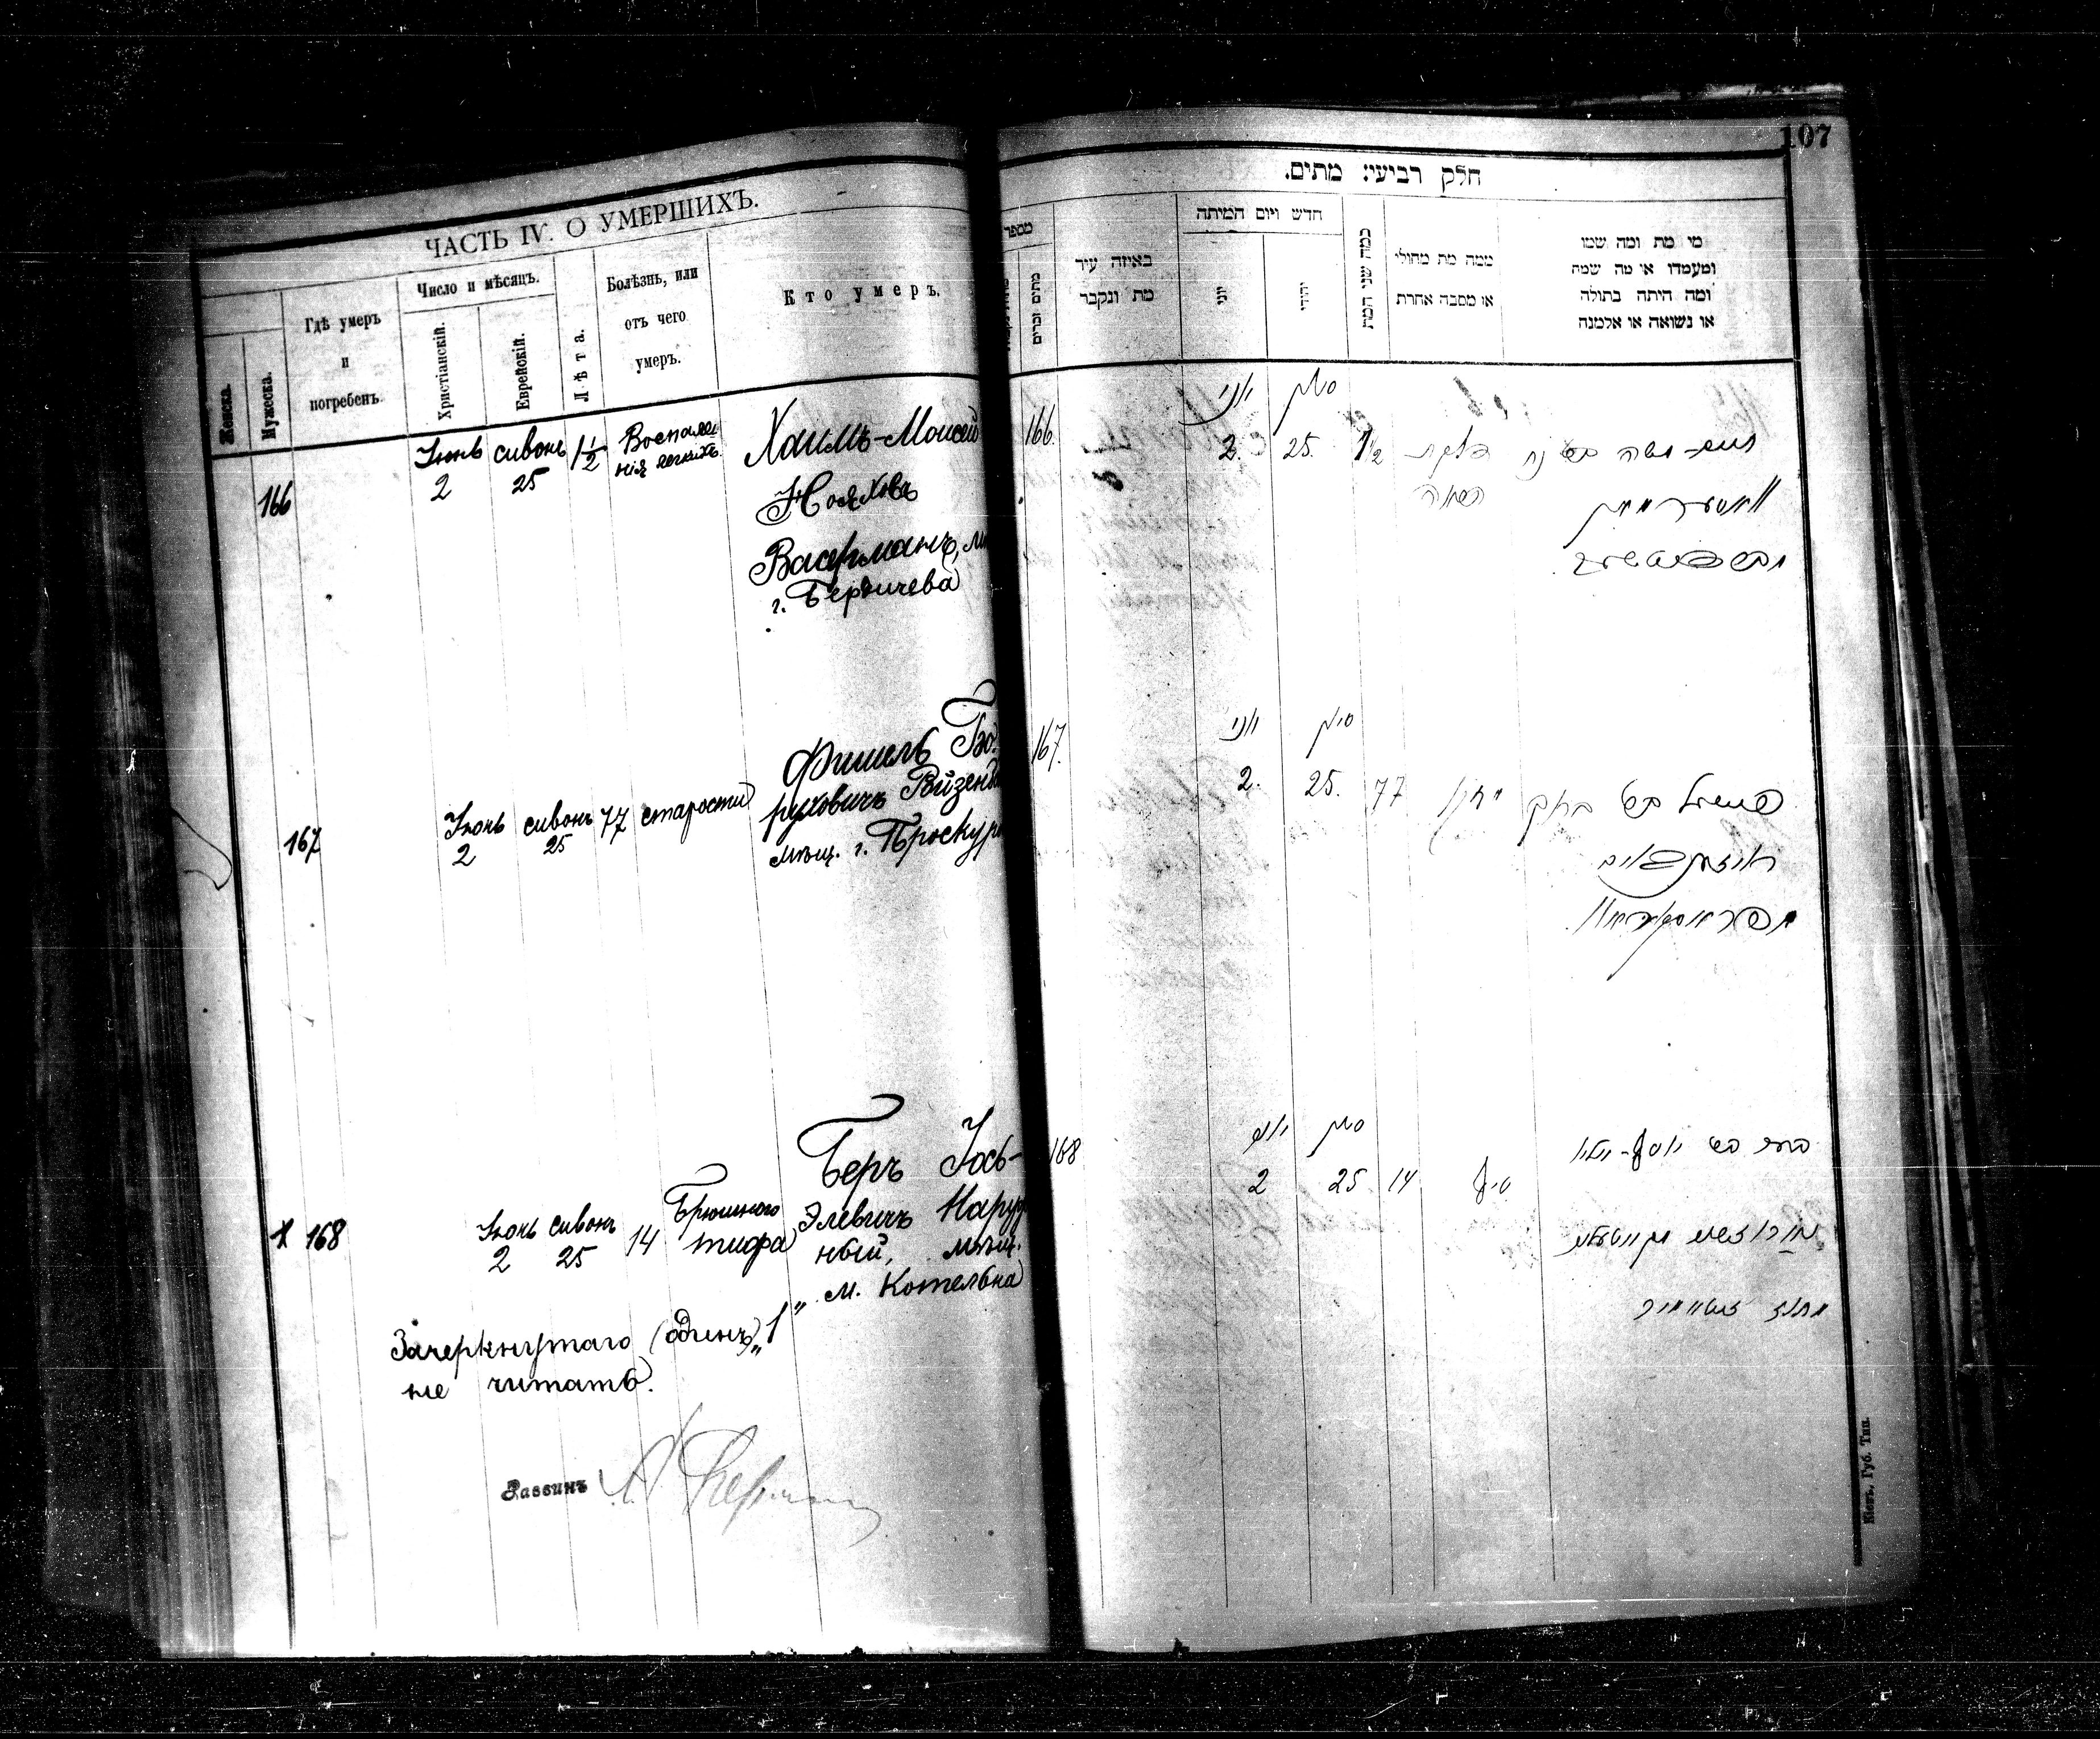 ЧАСТЬ IV. О УМЕРШИХЪ.
Женска.
Мужеска.
Гдѣ умеръ
и
погребенъ
Число и мѣсяцъ.
Христіанскій.
Еврейскій.
Лѣта.
Болѣзнь, или
отъ чего
умеръ.
Кто умеръ.
166
Іюнь
2
сивонъ
25
1 1/2
Воспале
нія легкихъ
Хаимъ-Моисей
Нояховъ
Васерманъ,
г. Бердичева
167
Іюнь
2
сивонъ
25
77
старости
Фишель Бо
руховичъ
мѣщ. г. Проскур
168
Іюнь
2
сивонъ
25
14
Брюшного
тифа
Беръ Іось-
Элевичъ
ный, мѣщ.
м. Котельна
Зачеркнутаго (одинъ) „1“
не читать.
Раввинъ
107
חלק רביעי: מתים.
מספר
מתים זכרים
באיזה עיר
מת ונקבר
חדש ויום המיתה
יוני
יהודי
כמה שני המת
ממה מת מחולי
או מסבה אחרת
מי מת ומה שמו
ומעמדו או מה שמה
ומה היתה בתולה
או נשואה או אלמנה
166.
יוני
2.
סיון
25.
1 1/2
דלקת
הריאה
חיים-משה בן נח
וואסערמאן
167.
יוני
2.
סיון
25.
77
פישל בן ברוך
168
יוני
2
סיון
25
14
בער בן יוסף-
Кіевъ, Губ. Тип.